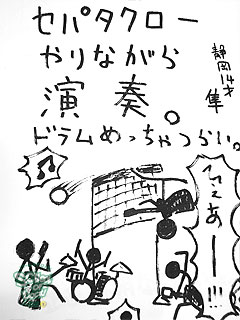 セパタクロー
やりながら
演奏。
ドラムめっちゃつらい。
静岡14才
隼